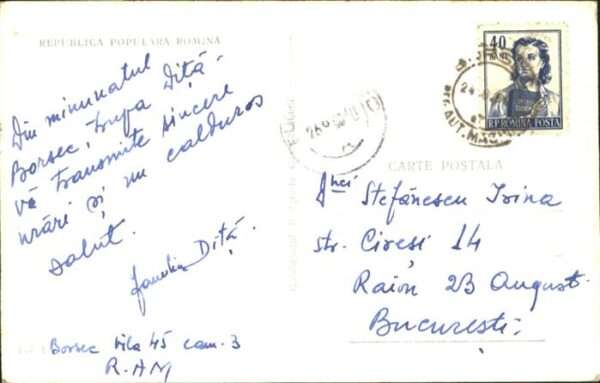 REPUBLICA POPULARA ROMINA
Din minunatul
Borsec, trupa Diță
vă transmite sincere
urări și un călduros
salut.
familia Diță.
Borsec vila 45 cam. 3
R.AM
40
REP. ROMINA POSTA
AUT. MAGH
CARTE POSTALA
Dnei Stefănescu Irina
str. Cireși 14
Raion 23 August
București